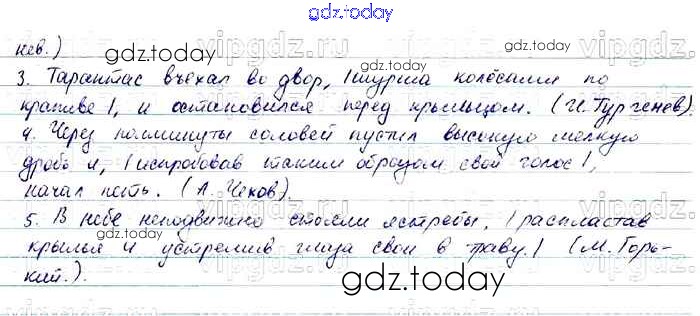 gdz.today
нев.)
3. Тарантас въехал во двор, |шурша колёсами по
крапиве|, и остановился перед крыльцом. (И. Тургенев).
4. Через полминуты соловей пустил высокую мелкую
дробь и, |испробовав таким образом свой голос|,
начал петь. (А. Чехов).
5. В небе неподвижно стояли ястребы, |распластав
крылья и устремив глаза свои в траву.| (М. Горь-
кий.).
gdz.today